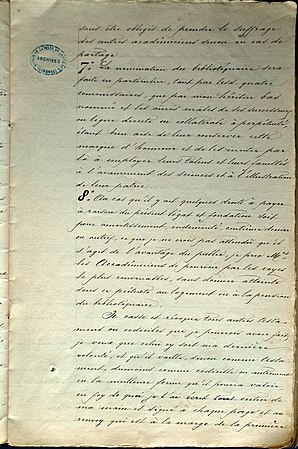 sans être obligés de prendre le suffrage
des autres académiciens sinon en cas de
partage.
7.° La nomination du bibliotéquaire sera
faite en particulier, tant par lesd. quatre
commissaires, que par mon héritier bas
nommé et les ainés males de ses successeurs
en ligne directe ou collatérale à perpétuité,
étant bien aise de leur conserver cette
marque d'honneur et de les inviter par
là à employer leurs talens et leurs facultés
à l'avancement des sciences et à l'illustration
de leur patrie.
8.° Au cas qu'il y ait quelques droits à payer
à raison du présent légat et fondation soit
pour amortissement indemnité, centième denier
ou autres, ce que je ne crois pas attendu qu'il
s'agit de l'avantage du public, je prie M.rs
les Accadémiciens de pourvoir par les voyes
les plus convenables, sans donner atteinte
sous ce prétexte au logement ni à la pension
du bibliotéquaire.
Je casse et révoque tous autres testa-
mens ou codiciles que je pourrois avoir fait,
je veus que celui cy soit ma dernière
volonté, et qu'il vaille, sinon comme testa-
ment, dumoins comme codicille ou autrement
en la meilleure forme qu'il pourra valoir
en foy de quoi je l'ai écrit tout entier de
ma main et signé à chaque page et au
renvoy qui est à la marge de la première
ARCHIVES